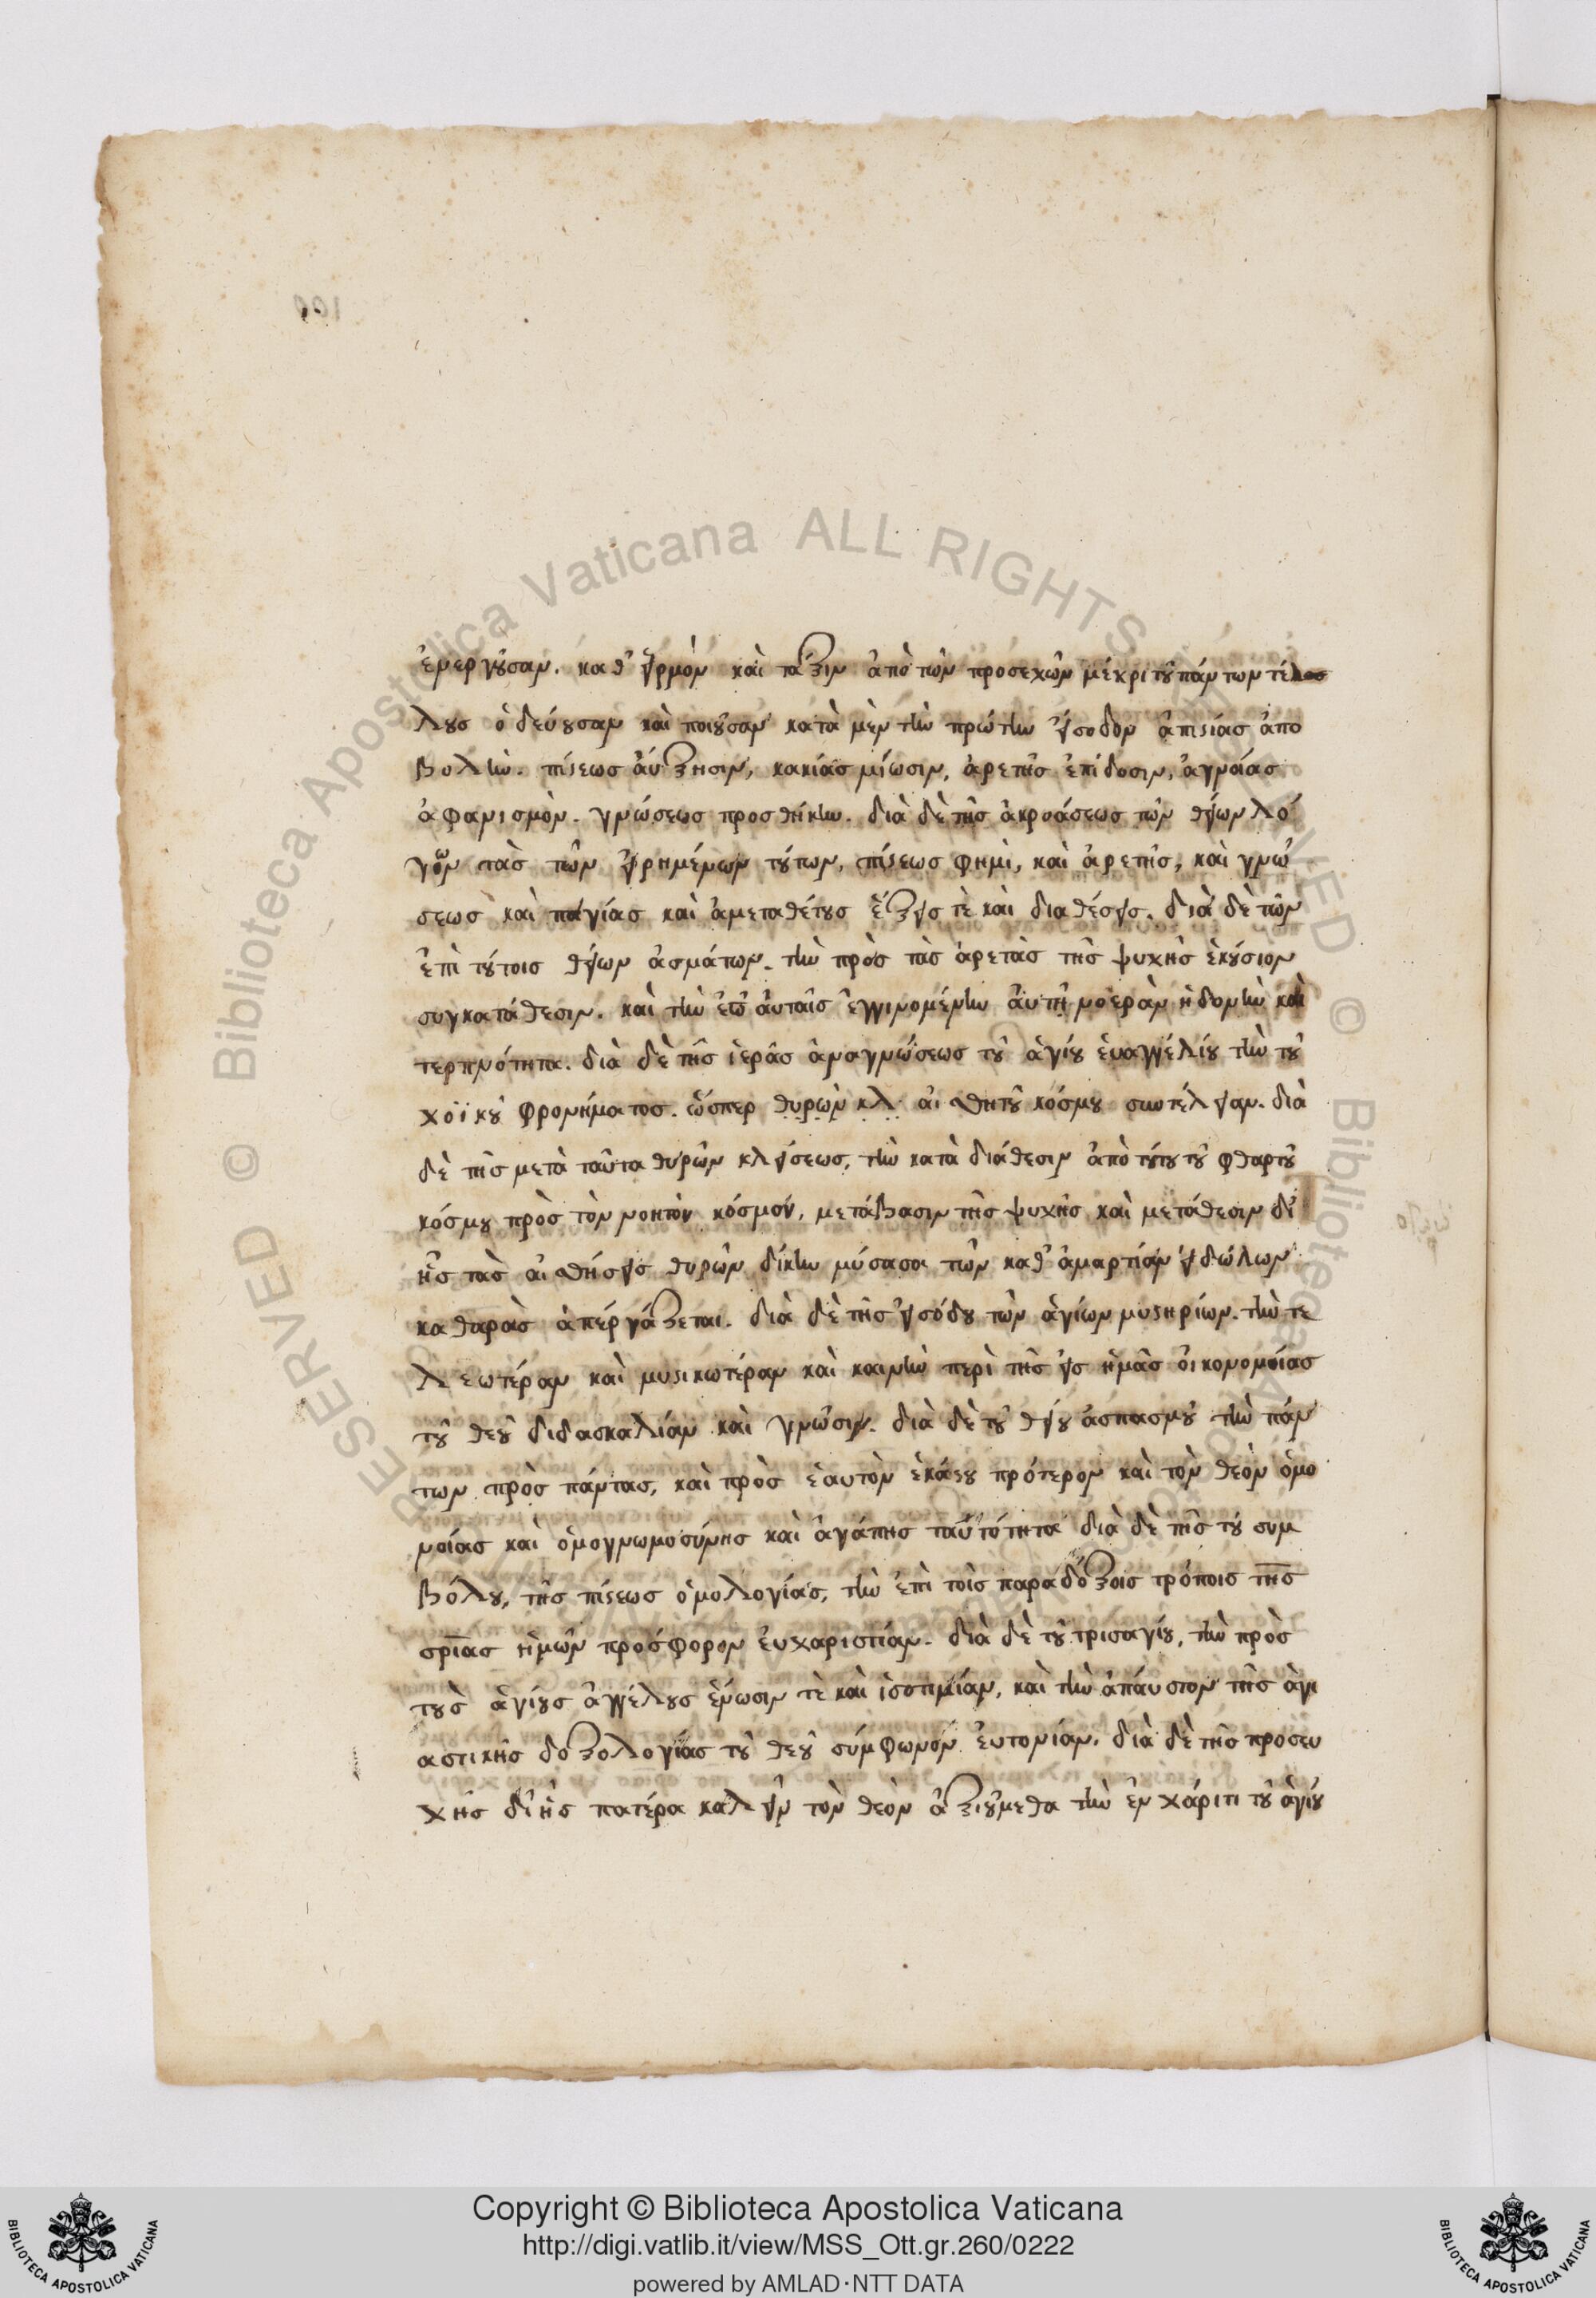 ἐνεργοῦσαν. καθ' εἱρμὸν καὶ τάξιν ἀπὸ τῶν προσεχῶν μέχρι τοῦ πάντων τέ
λους ὁδεύουσαν καὶ ποιοῦσαν κατὰ μὲν τὴν πρώτην εἴσοδον ἀπιστίας ἀπο
βολὴν. πίστεως ἄυξησιν, κακίας μίωσιν, ἀρετῆς ἐπίδοσιν, ἀγνοίας
ἀφανισμὸν. γνώσεως προσθήκην. διὰ δὲ τῆς ἀκροάσεως τῶν θείων λό
γων τὰς τῶν εἰρημένων τούτων, πίστεως φημὶ, καὶ ἀρετῆς, καὶ γνώ
σεως καὶ παγίας καὶ ἀμεταθέτους ἕξεις τὲ καὶ διαθέσεις. διὰ δὲ τῶν
ἐπὶ τούτοις θείων ἀσμάτων. τὴν πρὸς τὰς ἀρετὰς τῆς ψυχῆς ἑκούσιον
συγκατάθεσιν. καὶ τὴν ἐπ' ἀυταῖς ἐγγινομένην ἀυτῆ νοερὰν ἡδονὴν καὶ
τερπνότητα. διὰ δὲ τῆς ἱερᾶς ἀναγνώσεως τοῦ ἁγίου ἐυαγγελίου τὴν τοῦ
χοϊκοῦ φρονήματος. ὥσπερ θυρῶν κλ αἰσθητοῦ κόσμου συντέλειαν. διὰ
δὲ τῆς μετὰ ταῦτα θυρῶν κλείσεως, τὴν κατὰ διάθεσιν ἀπὸ τούτου τοῦ φθαρτοῦ
κόσμου πρὸς τὸν νοητὸν κόσμον, μετάβασιν τῆς ψυχῆς καὶ μετάθεσιν δι'
ἧς τὰς αἰσθήσεις θυρῶν δίκην μύσασα τῶν καθ' ἁμαρτίαν εἰδώλων
καθαρὰς ἀπεργάζεται. διὰ δὲ τῆς εἰσόδου τῶν ἁγίων μυστηρίων. τὴν τε
λεωτέραν καὶ μυστικωτέραν καὶ καινὴν περὶ τῆς εἰς ἡμᾶς ὀικονομίας
τοῦ θεοῦ διδασκαλίαν καὶ γνῶσιν. διὰ δὲ τοῦ θείου ἀσπασμοῦ τὴν πάν
των πρὸς πάντας, καὶ πρὸς ἑαυτὸν ἑκάστου πρότερον καὶ τὸν θεὸν ὁμο
νοίας καὶ ὁμογνωμοσύνης καὶ ἀγάπης ταὐτότητα διὰ δὲ τῆς τοῦ συμ
βόλου, τῆς πίστεως ὁμολογίας, τὴν ἐπὶ τοῖς παραδόξοις τρόποις τῆς
σρίας ἡμῶν προσφορον ἐυχαριστίαν. διὰ δὲ τοῦ τρισαγίου, τὴν πρὸς
τοὺς ἁγίους ἀγγέλους ἕνωσιν τὲ καὶ ἰσοτιμίαν, καὶ τὴν ἀπάυστον τῆς ἁγι
αστικῆς δοξολογίας τοῦ θεοῦ σύμφωνον ἐυτονίαν. διὰ δὲ τῆς προσευ
χῆς δι' ἧς πατέρα καλεῖν τὸν θεὸν ἀξιούμεθα τὴν ἐν χάριτι τοῦ ἁγίου
Copyright © Biblioteca Apostolica Vaticana
http://digi.vatlib.it/view/MSS_Ott.gr.260/0222
powered by AMLAD·NTT DATA